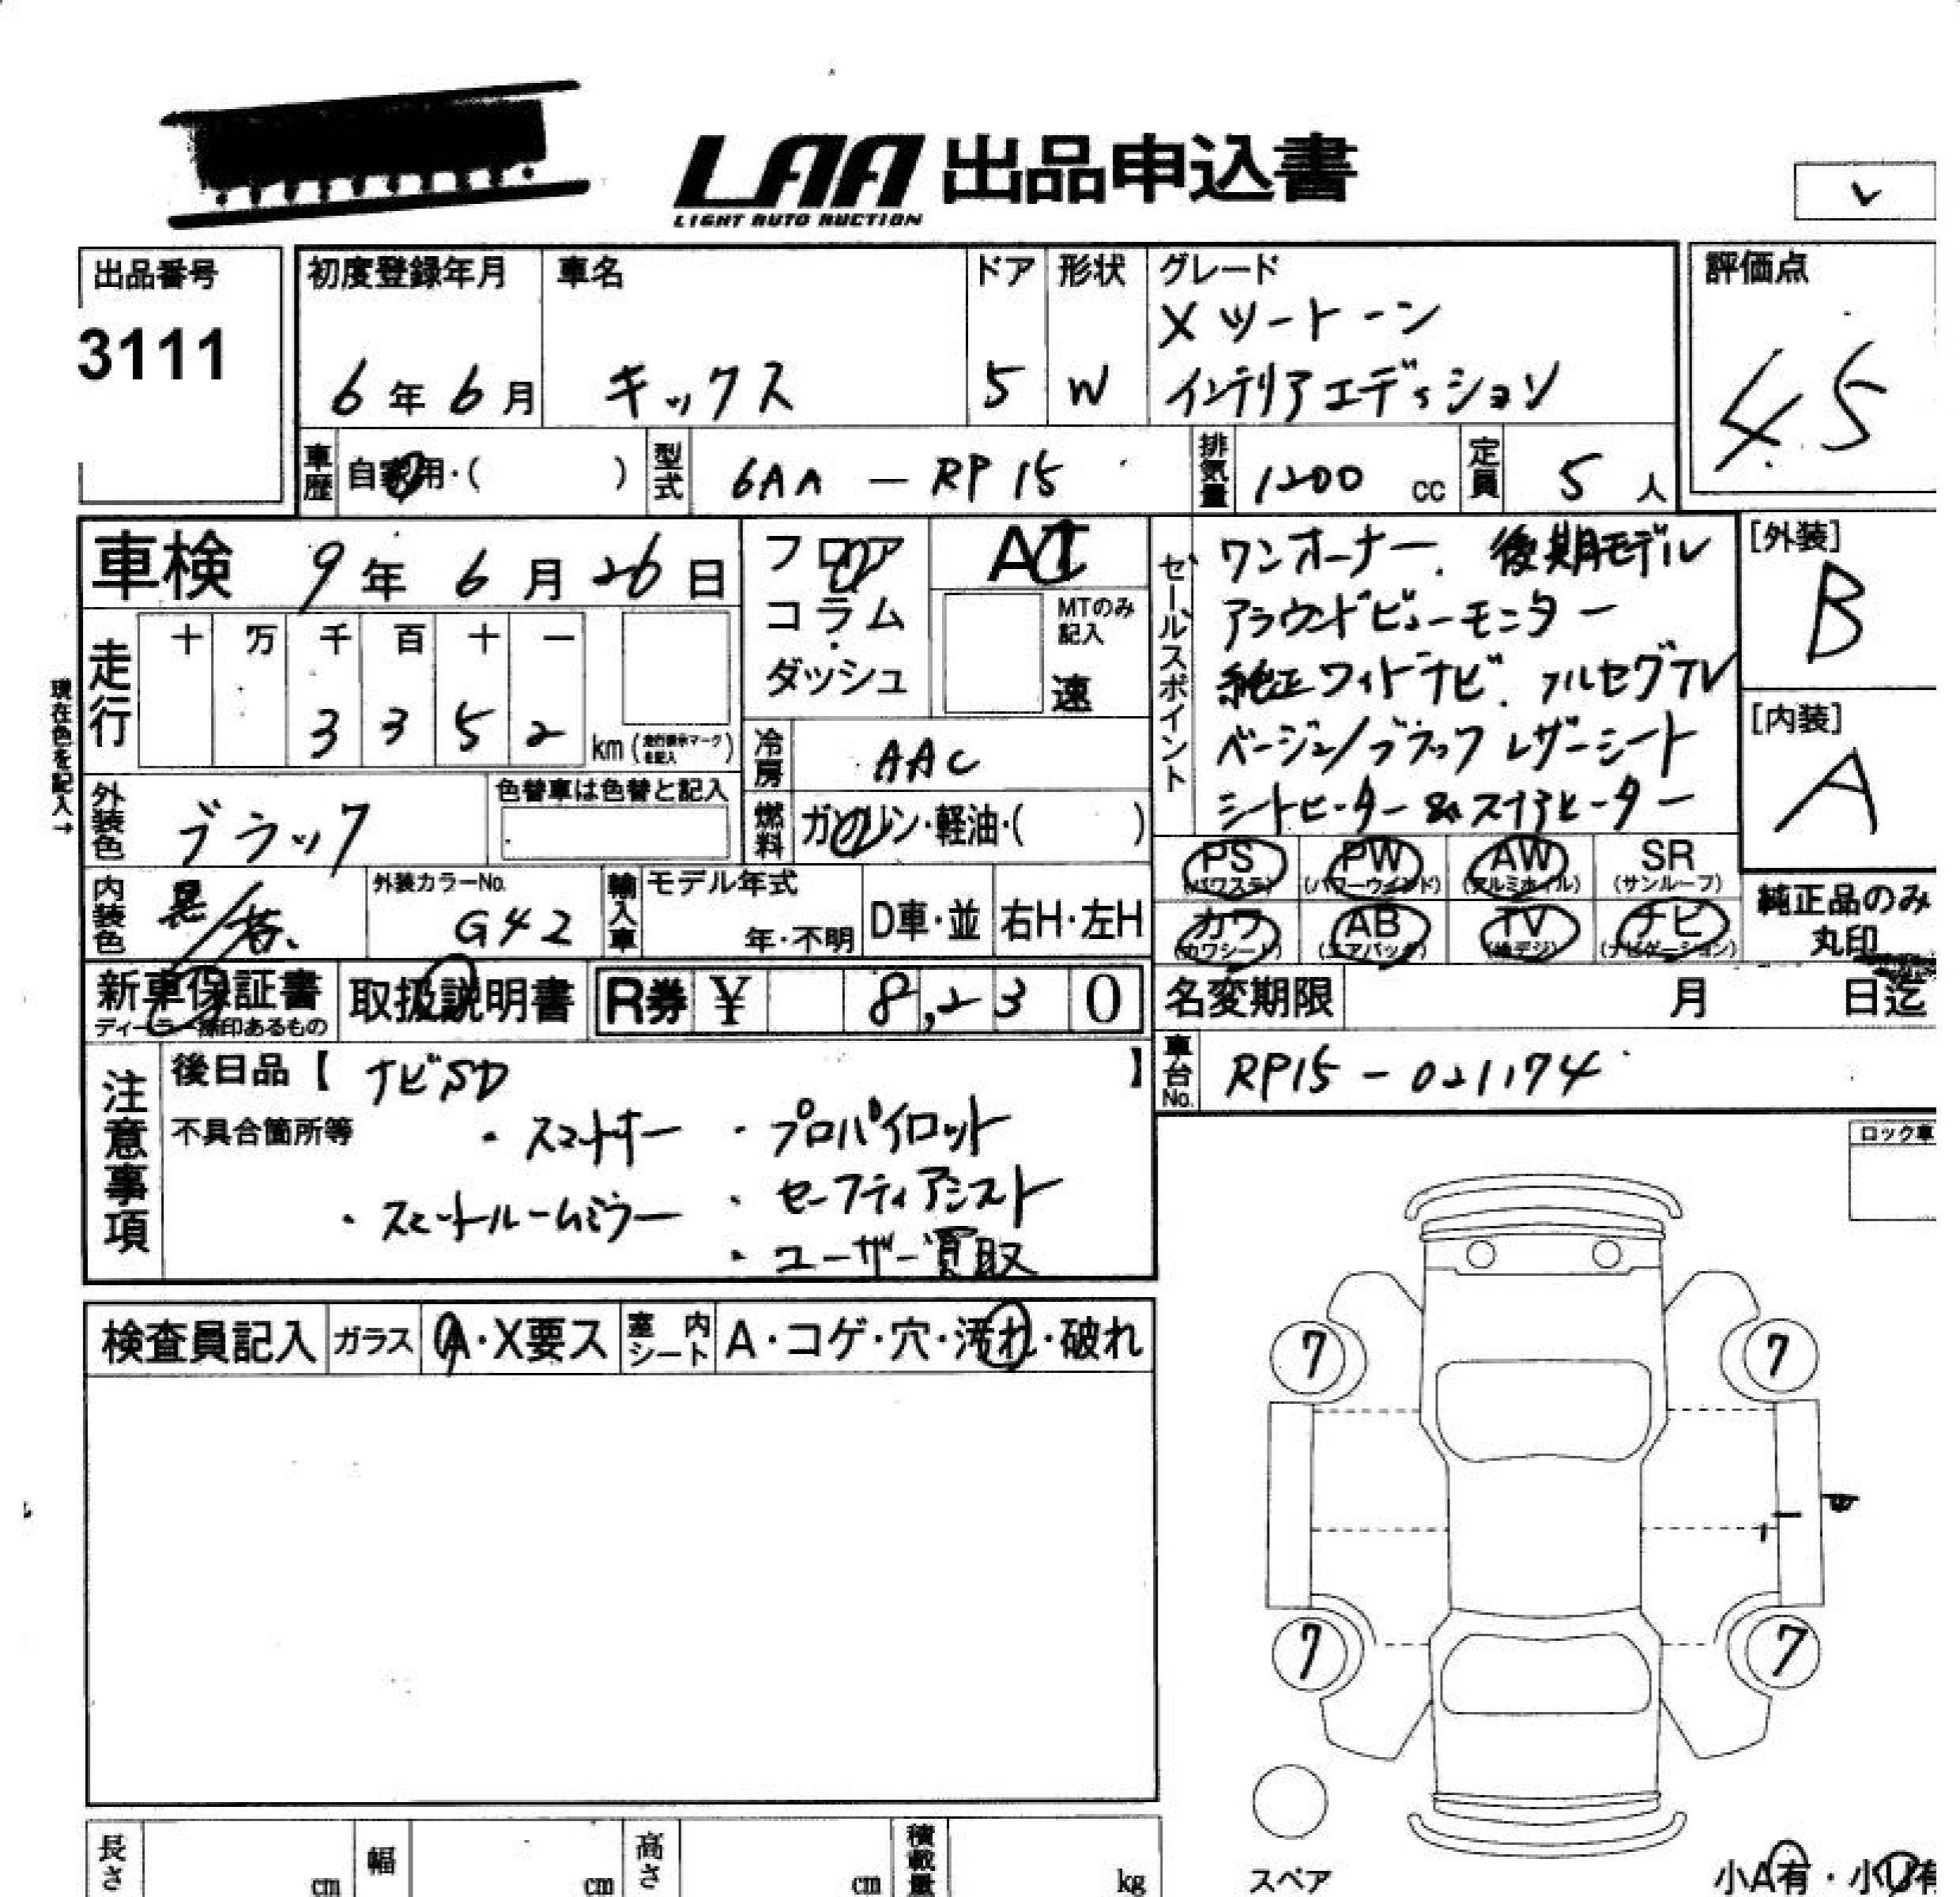 LAA 出品申込書
LIGHT AUTO AUCTION
出品番号
3111
初度登録年月
6年6月
車名
キックス
ドア
5
形状
W
グレード
X ツートーン
インテリアエディション
評価点
4.5
車歴
自家用・( )
型式
6AA-RP15
排気量
1200 cc
定員
5人
車検
9年6月26日
フロア
コラム
ダッシュ
AT
MTのみ
記入
速
セールスポイント
ワンオーナー. 後期モデル
アラウンドビューモニター
純正ワイドナビ. フルセグTV
ベージュ/ブラック レザーシート
シートヒーター &ステアヒーター
[外装]
B
[内装]
A
現在色を記入→
走行
十 万 千 百 十 一
3 3 5 2
km(走行表示マークを記入)
冷房
AAC
燃料
ガソリン・軽油・( )
外装色
ブラック
色替車は色替と記入
内装色
外装カラーNo.
G42
輸入車
モデル年式
年・不明
D車・並
右H・左H
PS
(パワステ)
PW
(パワーウインド)
AW
(アルミホイル)
SR
(サンルーフ)
カワ
(カワシート)
AB
(エアバック)
TV
(地デジ)
ナビ
(ナビゲーション)
純正品のみ
丸印
新車保証書
ディーラー捺印あるもの
取扱説明書
R券 ¥ 8,230
名変期限
月 日迄
注意事項
後日品【 ナビSD 】
不具合箇所等
・スマートキー
・プロパイロット
・スマートルームミラー
・セーフティアシスト
・ユーザー買取
車台No.
RP15-021174
ロック車
検査員記入
ガラス
A・X要ス
室内
シート
A・コゲ・穴・汚れ・破れ
7
7
7
7
スペア
小A有・小U有
長さ
cm
幅
cm
高さ
cm
積載量
kg